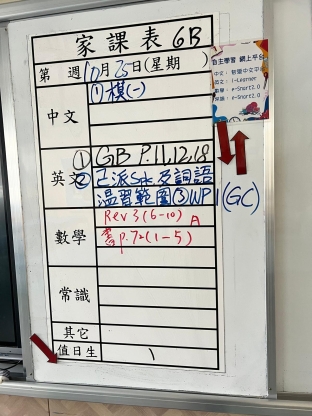 家課表 6B
第 週 10月25日(星期 )
中文 ①模(一)
英文 ①GB P.11,12,18
②已派S及詞語
溫習範圍③WP1(GC)
數學 Rev 3(6-10) A
書p.72(1-5)
常識
其它
值日生
自主學習 網上平台
中文: 智愛中文平台
英文: i-Learner
數學: e-Smart2.0
常識: e-Smart2.0